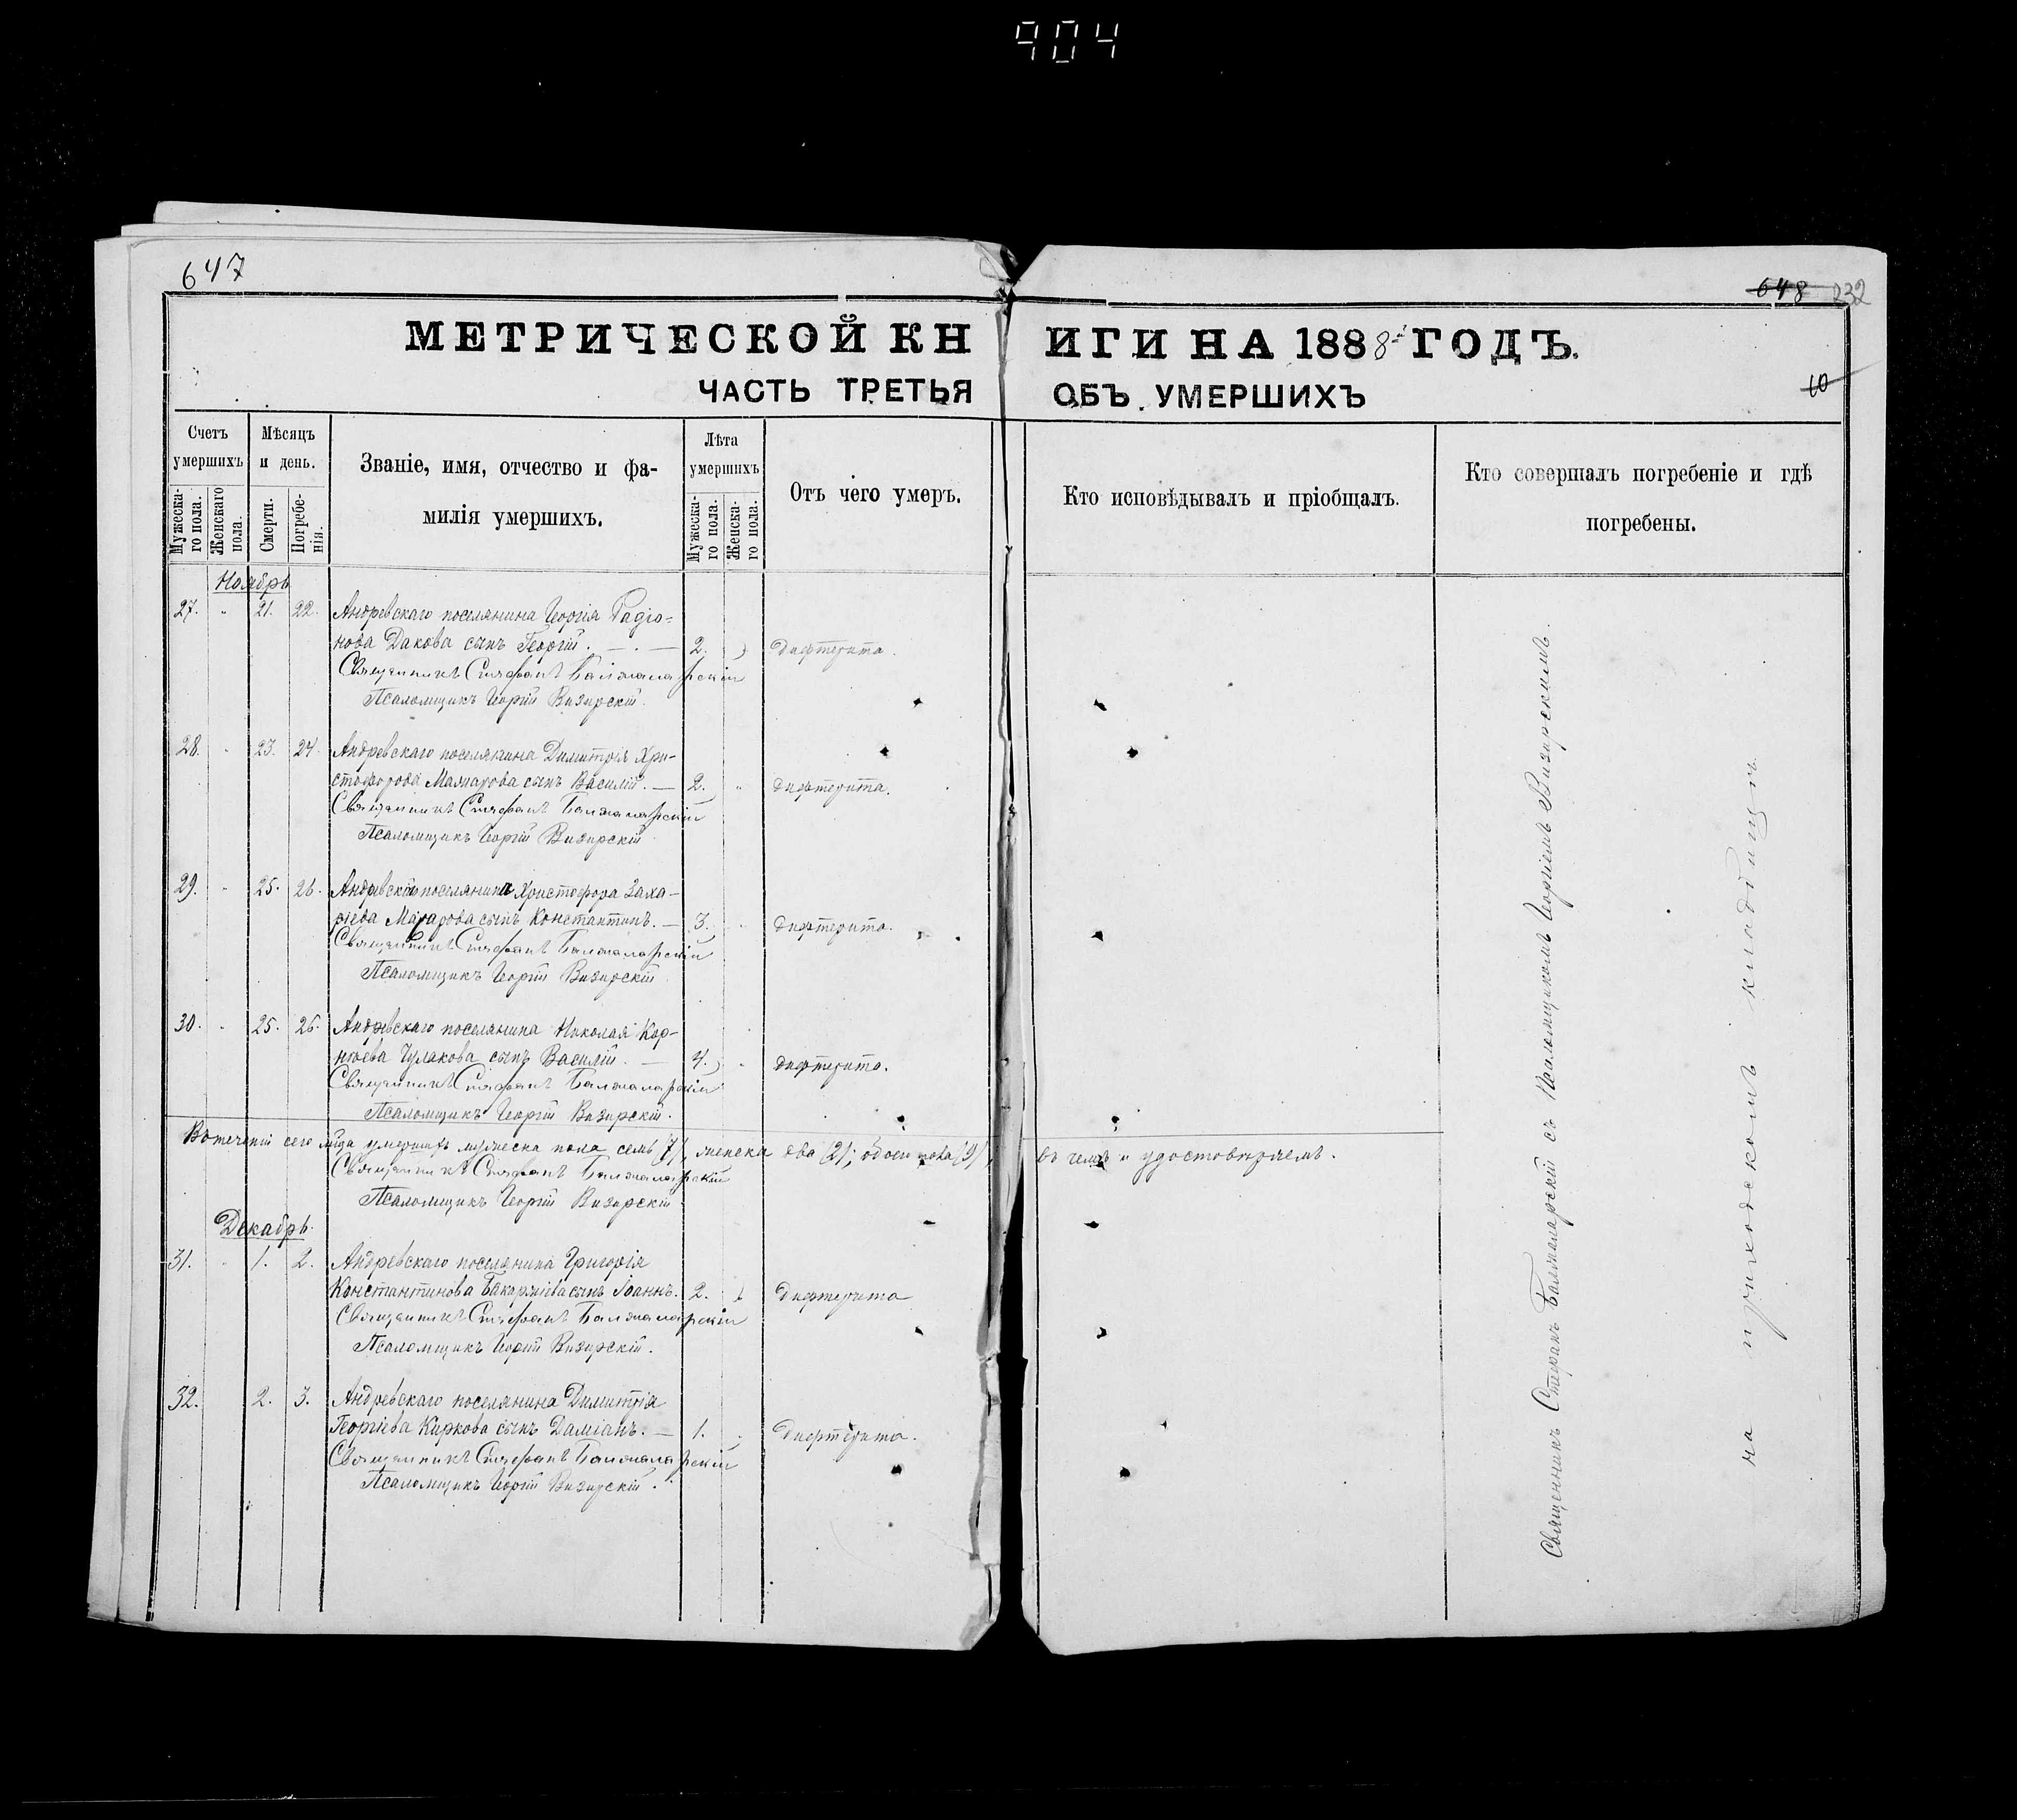 904
647
648 232
МЕТРИЧЕСКОЙ КНИГИ НА 1888й ГОДЪ.
ЧАСТЬ ТРЕТЬЯ ОБЪ УМЕРШИХЪ
10
Счетъ умершихъ
Мужеска-го пола.
Женскаго пола.
Мѣсяцъ и день.
Смерти.
Погребе-нія.
Званіе, имя, отчество и фа-
милія умершихъ.
Лѣта умершихъ
Мужеска-го пола.
Женска-го пола.
Отъ чего умеръ.
Кто исповѣдывалъ и пріобщалъ.
Кто совершалъ погребеніе и гдѣ
погребены.
Ноябрь
27. " 21. 22. Андревскаго поселянина Георгія Радіо=
нова Дакова сынъ Георгій. — . — 2. дифтерита.
Священникъ Стефанъ Балжаларскій
Псаломщикъ Георгій Визирскій.
28. " 23. 24. Андревскаго поселянина Димитрія Хри-
стофорова сынъ Василій. — 2. " дифтерита.
Священникъ Стефанъ Балжаларскій
Псаломщикъ Георгій Визирскій
29. " 25. 26. поселянина Христофора Заха-
ріева сынъ Константинъ. — 3. " дифтерита.
Священникъ Стефанъ Балжаларскій
Псаломщикъ Георгій Визирскій
30. " 25. 26. Андревскаго поселянина Николая Кор-
нюева Чулакова сынъ Василій. — 4. " дифтерита.
Священникъ Стефанъ Балжаларскій
Псаломщикъ Георгій Визирскій.
Втеченіи сего мѣсца умершихъ мужеска пола семь (7), женска два (2), обоего пола (9), въ чемъ и удостовѣряемъ.
Священникъ Стефанъ Балжаларскій
Псаломщикъ Георгій Визирскій
Декабрь.
31. " 1. 2. Андревскаго поселянина Григорія
Константинова сынъ Іоаннъ. 2. дифтерита
Священникъ Стефанъ Балжаларскій
Псаломщикъ Георгій Визирскій.
32. 2. 3. Андревскаго поселянина Димитрія
Георгіева Киркова сынъ Даміанъ. — 1. дифтерита.
Священникъ Стефанъ Балжаларскій
Псаломщикъ Георгій Визирскій.
Священникъ Стефанъ Балжаларскій съ Псаломщикомъ Георгіемъ Визирскимъ.
на приходскомъ кладбищѣ.